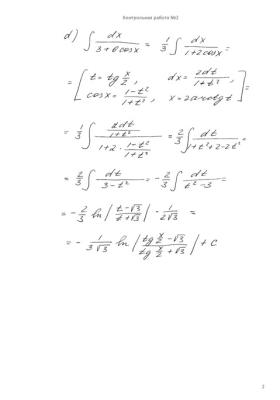 Контрольная работа №2
d) ∫ dx / (3 + 6cosx) = 1/3 ∫ dx / (1 + 2cosx) =
= [ t = tg x/2, dx = 2dt / (1 + t²), cosx = (1 - t²) / (1 + t²), x = 2arctg t ] =
= 1/3 ∫ (2dt / (1 + t²)) / (1 + 2 · (1 - t²) / (1 + t²)) = 2/3 ∫ dt / (1 + t² + 2 - 2t²) =
= 2/3 ∫ dt / (3 - t²) = - 2/3 ∫ dt / (t² - 3) =
= - 2/3 ln | (t - √3) / (t + √3) | · 1 / (2√3) =
= - 1 / (3√3) ln | (tg x/2 - √3) / (tg x/2 + √3) | + C
2